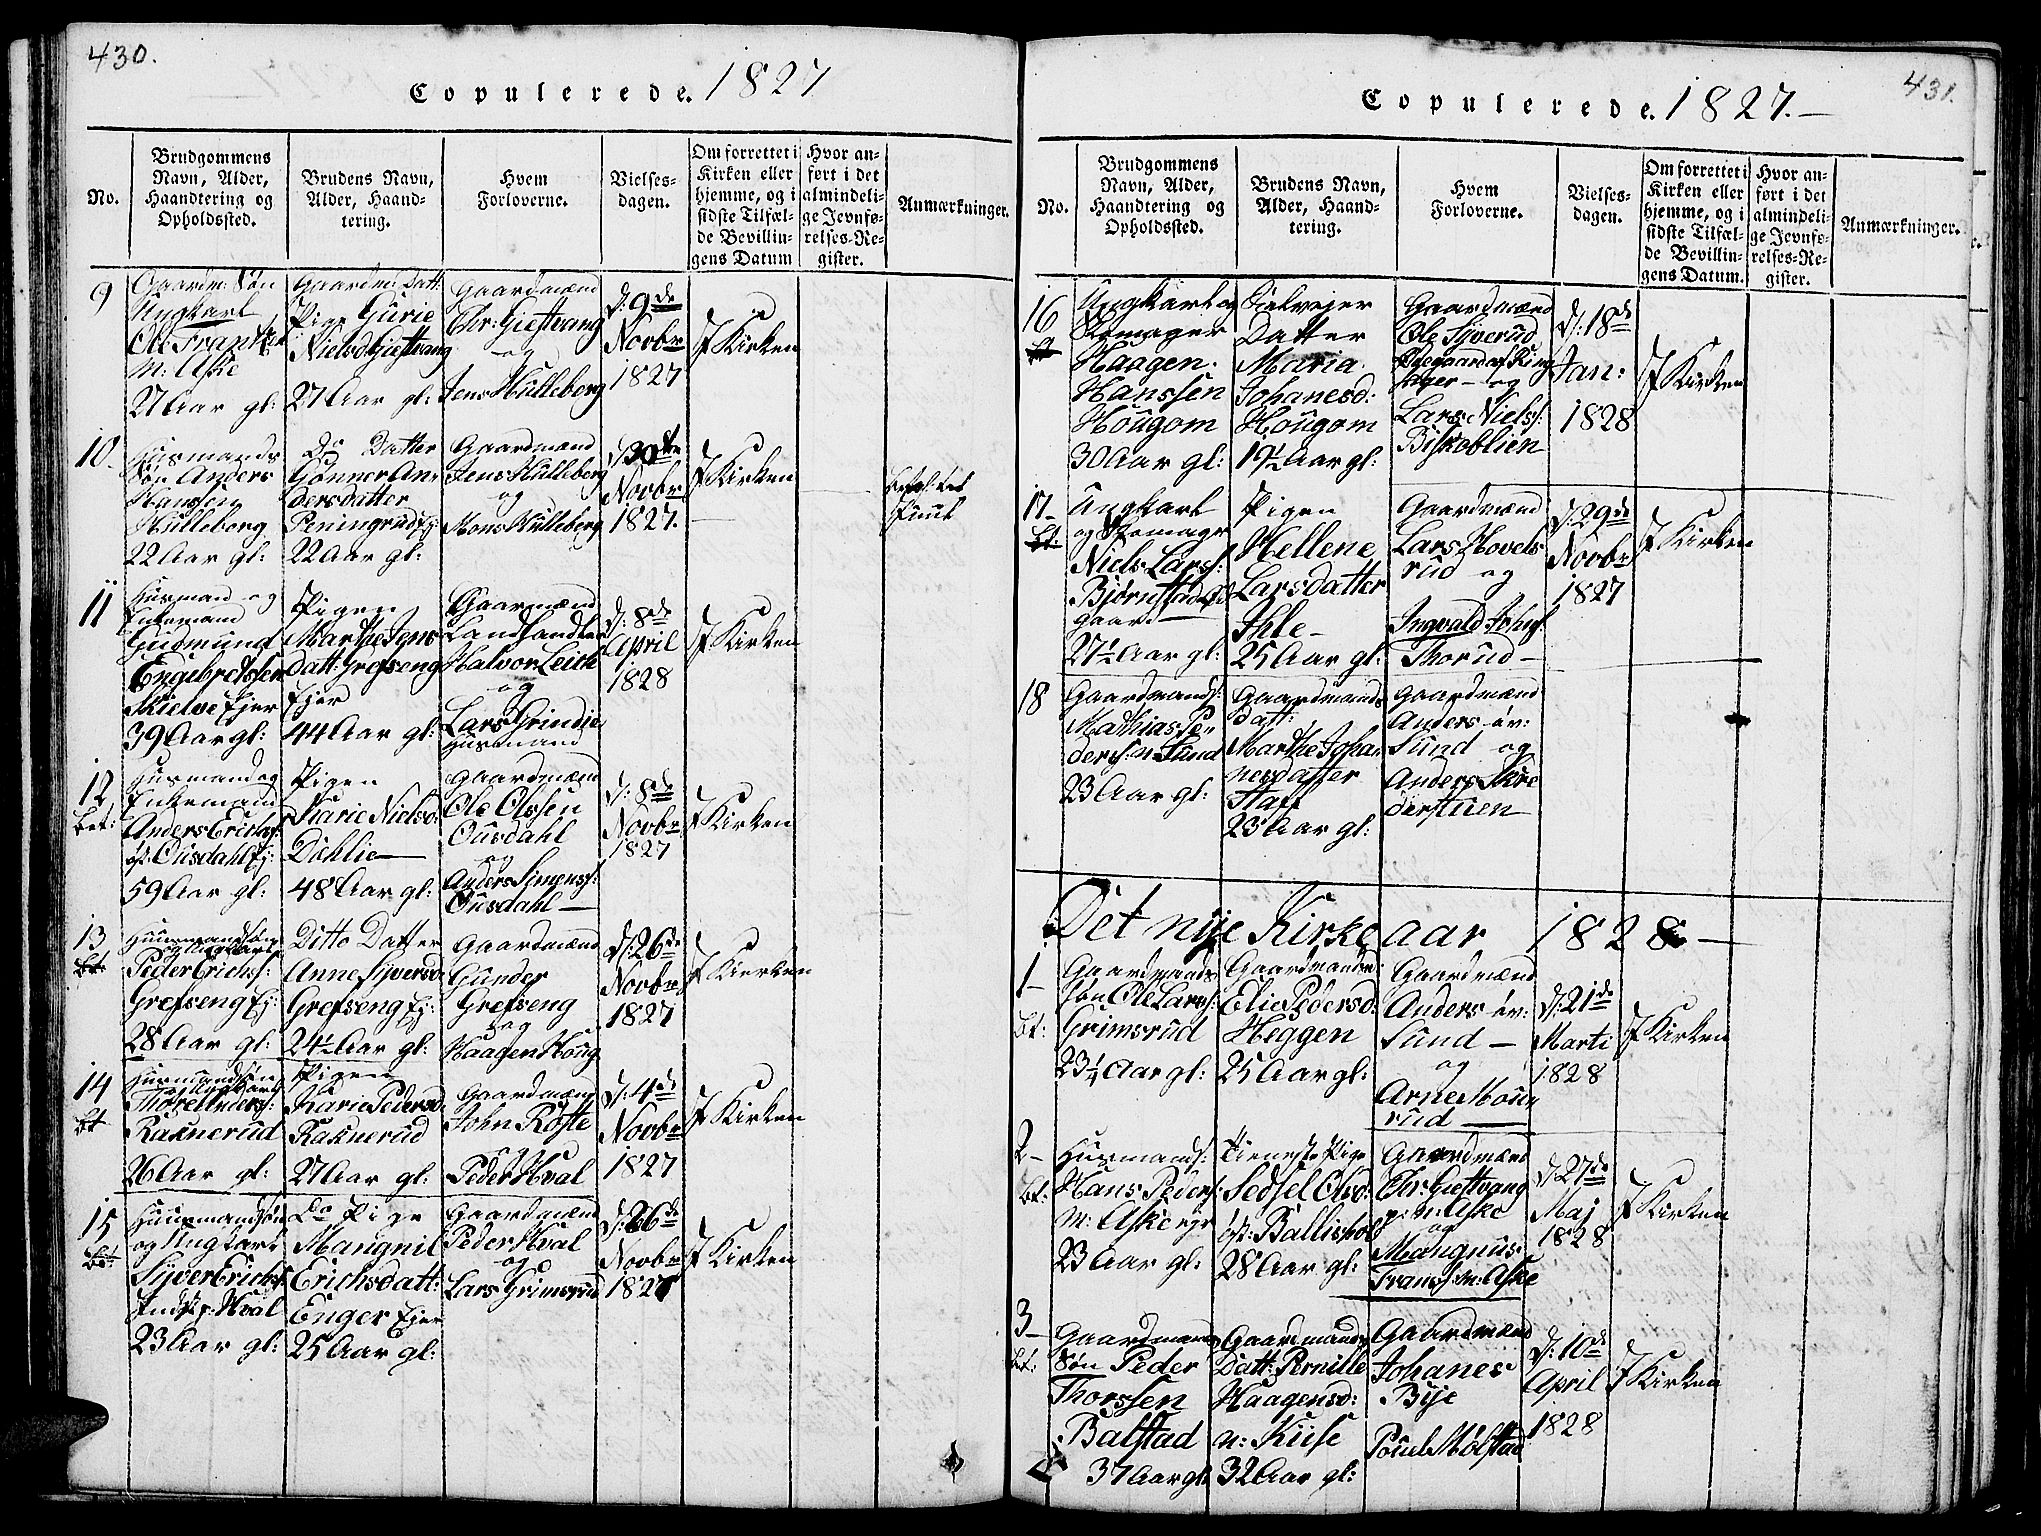 430.
Copulerede. 1827
No.
Brudgommens
Navn, Alder,
Haandtering og
Opholdssted.
Brudens Navn,
Alder, Haand-
tering.
Hvem
Forloverne.
Vielses-
dagen.
Om forrettet i
Kirken eller
hjemme, og i
sidste Tilfæl-
de Bevillin-
gens Datum
Hvor an-
ført i det
almindeli-
ge Jevnfø-
relses-Re-
gister.
Anmærkninger.
9
Gaardm: Søn
Ungkarl
Ole
m: Aske
27 Aar gl:
Gaardm: Datt:
Pige Gurie
Nielsd Giestvang
27 Aar gl:
Gaardmænd
Chr: Giestvang
og
Jens Hulleberg
d: 9de
Novbr
1827
I Kirken
10.
Husmands
Søn Anders
Hansen
Hulleborg
22 Aar gl:
Do Datter
Gønner An-
dersdatter
Peningrud Ej:
22 Aar gl:
Gaardmænd
Jens Hulleberg
og
Mons Hulleberg
d 30te
Novbr
1827.
I Kirken
betaltes
11
Husmand og
Enkemand
Gudmund
Engebretssen
Skielve Ejer
39 Aar gl:
Pigen
Marthe Jens
datt: Grefseng
Ejer
44 Aar gl:
Gaarmænd
Landhandler
Halvor Leith
og
Lars Grindie
Husmand
d: 8de
April
1828
I Kirken
12
bet:
Husmand og
Enkemand
Anders Erichs:
øst: Ousdahl Ej:
59 Aar gl:
Pigen
Karie Nielsd:
Døhlie
48 Aar gl:
Gaardmænd
Ole Olssen
Ousdahl
og
Anders Simens:
Ousdahl
d: 8de
Novbr
1827
I Kirken
13
bt:
Huusmandssøn
og Ungkarl
Peder Erichs:
Grefseng Ej:
28 Aar gl:
Ditto Datter
Anne Syversd:
Grefseng Ej:
24½ Aar gl:
Gaardmænd
Gunder
Grefseng
og
Haagen Houg
d: 26de
Novbr
1827
I Kierken
14
bt
Husmandsøn
og Ungkarl
Thore Anders:
Raknerud
26 Aar gl:
Pigen
Karie Pedersd:
Raknerud
27 Aar gl:
Gaardmænd
John Røste
og
Peder Hval
d: 4de
Novbr
1827
I Kirken
15
bt:
Huusmandsøn
og Ungkarl
Syver Erichs:
Inds: p: Hval
23 Aar gl:
Do Pige
Mangnil
Erichsdatt:
Enger Ejer
25 Aar gl:
Gaardmænd
Peder Hval
og
Lars Grimsrud
d: 26de
Novbr
1827
I Kirken
431.
Copulerede. 1827.
No.
Brudgommens
Navn, Alder,
Haandtering og
Opholdssted.
Brudens Navn,
Alder, Haand-
tering.
Hvem
Forloverne.
Vielses-
dagen.
Om forrettet i
Kirken eller
hjemme, og i
sidste Tilfæl-
de Bevillin-
gens Datum.
Hvor an-
ført i det
almindeli-
ge Jevnfø-
relses-Re-
gister.
Anmærkninger.
16
bt
Ungkarl og
Skomager
Haagen
Hanssen
Hougom
30 Aar gl:
Sielvejer
Datter
Maria
Johanesd:
Hougom
19½ Aar gl:
Gaardmænd
Ole Syverud
af Ring
sager og
Lars Niels:
Biskoblien
d: 18de
Jan:
1828
I Kirken
17
bt:
Ungkarl
og Skomager
Niels Lars:
Bjørnstad
gaard
27½ Aar gl:
Pigen
Hellene
Larsdatter
Ihle
25 Aar gl:
Gaardmænd
Lars Hovels
rud og
Ingvald Johs:
Thorud
d: 29de
Novbr
1827
I Kirken
18
Gaardmands:
Mathias Pe-
dersen Sund
23 Aar gl:
Gaardmands
Datt:
Marthe Johan
nesdatter
Staff
23 Aar gl:
Gaardmænd
Anders øv:
Sund og
Anders Skre
derstuen
Det nye Kirke aar 1828
1
bt:
Gaardmands
søn Ole Lars:
Grimsrud
23¼ Aar gl:
Gaardmands:
Elie Pedersd:
Heggen
25 Aar gl:
Gaardmænd
Anders øv:
Sund
og
Arne Moun
rud
d: 21de
Marti
1828
I Kirken
2
bt:
Husmands:
Hans Peders:
m: Aske ejr
23 Aar gl:
Tieneste Pige
Sedsel Olsd:
øst: Ballishol
28 Aar gl:
Gaardmænd
Chr: Giestvang
p: m: Aske
og
Mangnus
Frans: m: Aske
d: 27de
Maj
1828
I Kirken
3
bt:
Gaardmands
Søn Peder
Thorssen
Balstad
37 Aar gl:
Gaardmands
Datt: Pernille
Haagensd:
n: Kiise
32 Aar gl:
Gaardmænd
Johanes
Bye
Poul Mølstad
d: 10de
April
1828
I Kirken